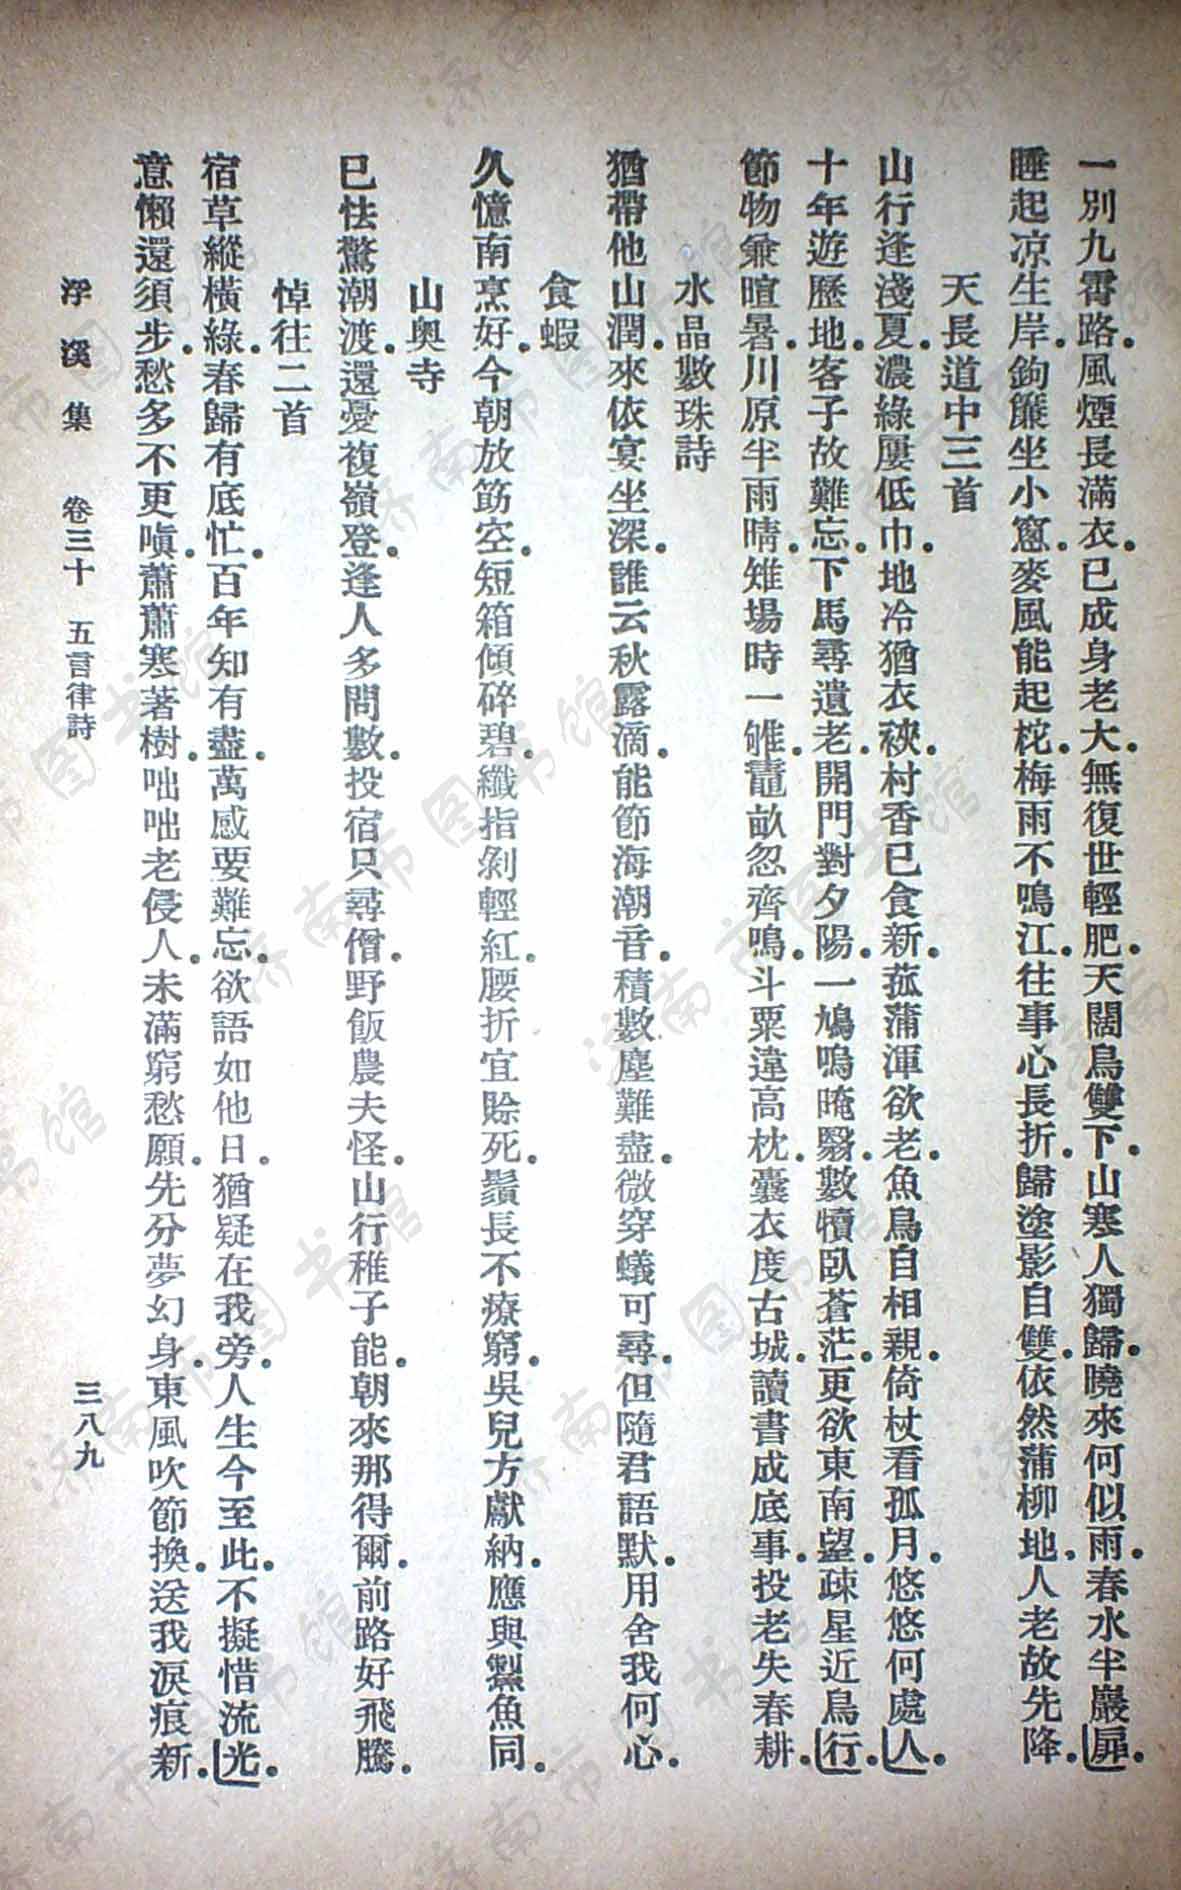 一別九霄路．風煙長滿衣．已成身老大．無復世輕肥．天闊鳥雙下．山寒人獨歸．曉來何似雨．春水半巖扉．
睡起涼生岸．鉤簾坐小窻．麥風能起柁．梅雨不鳴江．往事心長折．歸塗影自雙．依然蒲柳地．人老故先降．
天長道中三首
山行逢淺夏．濃綠屢低巾．地冷猶衣裌．村香已食新．菰蒲渾欲老．魚鳥自相親．倚杖看孤月．悠悠何處人．
十年遊歷地．客子故難忘．下馬尋遺老．開門對夕陽．一鳩鳴晻翳．數犢臥蒼茫．更欲東南望．疎星近鳥行．
節物兼暄暑．川原半雨晴．雉場時一雊．鼃畝忽齊鳴．斗粟違高枕．囊衣度古城．讀書成底事．投老失春耕．
水晶數珠詩
猶帶他山潤．來依宴坐深．誰云秋露滴．能節海潮音．積數塵難盡．微穿蟻可尋．但隨君語默．用舍我何心．
食蝦
久憶南烹好．今朝放筯空．短箱傾碎碧．纖指剝輕紅．腰折宜賒死．鬚長不療窮．吳兒方獻納．應與鱟魚同．
山奧寺
已怯驚潮渡．還憂複嶺登．逢人多問數．投宿只尋僧．野飯農夫怪．山行稚子能．朝來那得爾．前路好飛騰．
悼往二首
宿草縱橫綠．春歸有底忙．百年知有盡．萬感要難忘．欲語如他日．猶疑在我旁．人生今至此．不擬惜流光．
意懶還須步．愁多不更嗔．蕭蕭寒著樹．咄咄老侵人．未滿窮愁願．先分夢幻身．東風吹節換．送我淚痕新．
浮溪集 卷三十 五言律詩 三八九
济南市图书馆